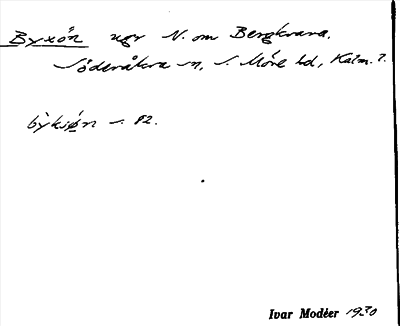 Byxön ugr N. om Bergkvara.
Söderåkra sn, S. Möre hd, Kalm. l.
bỳksø̀n s. 82.
Ivar Modéer 1930